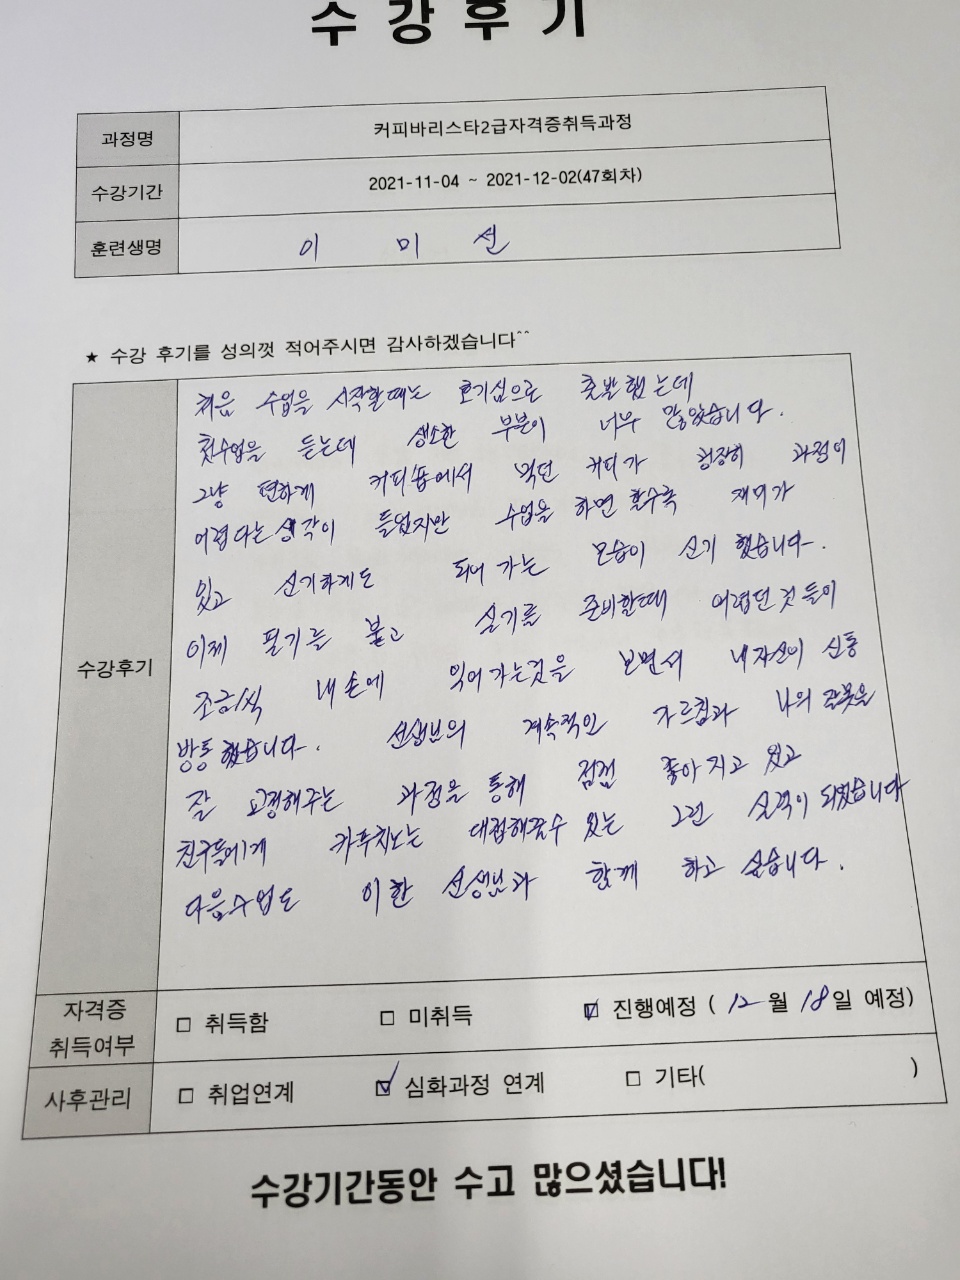 수강후기
과정명 커피바리스타2급자격증취득과정
수강기간 2021-11-04 ~ 2021-12-02(47회차)
훈련생명 이 미 선
★ 수강 후기를 성의껏 적어주시면 감사하겠습니다^^
수강후기
처음 수업을 시작할때는 호기심으로 출발했는데
첫수업을 듣는데 생소한 부분이 너무 많았습니다.
그냥 편하게 커피숍에서 먹던 커피가 굉장히 과정이
어렵다는 생각이 들었지만 수업을 하면 할수록 재미가
있고 신기하게도 되어 가는 모습이 신기 했습니다.
이제 필기를 붙고 실기를 준비할때 어렵던 것들이
조금씩 내 손에 익어가는것을 보면서 내자신이 신통
방통 했습니다. 선생님의 계속적인 가르침과 나의 잘못을
잘 교정해주는 과정을 통해 점점 좋아지고 있고
친구들에게 카푸치노는 대접해줄수 있는 그런 실력이 되었습니다
다음수업도 이한 선생님과 함께 하고 싶습니다.
자격증
취득여부
□ 취득함 □ 미취득 ☑ 진행예정 ( 12월 18일 예정)
사후관리 □ 취업연계 ☑ 심화과정 연계 □ 기타( )
수강기간동안 수고 많으셨습니다!